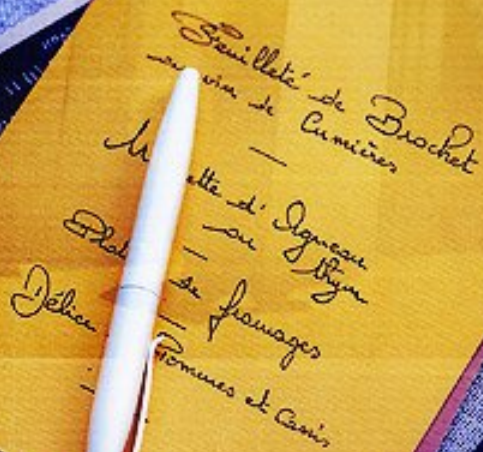 Feuilleté de Brochet
au vin de Cumières
—
d' Agneau
au thym
—
de fromages
—
Pommes et Cassis